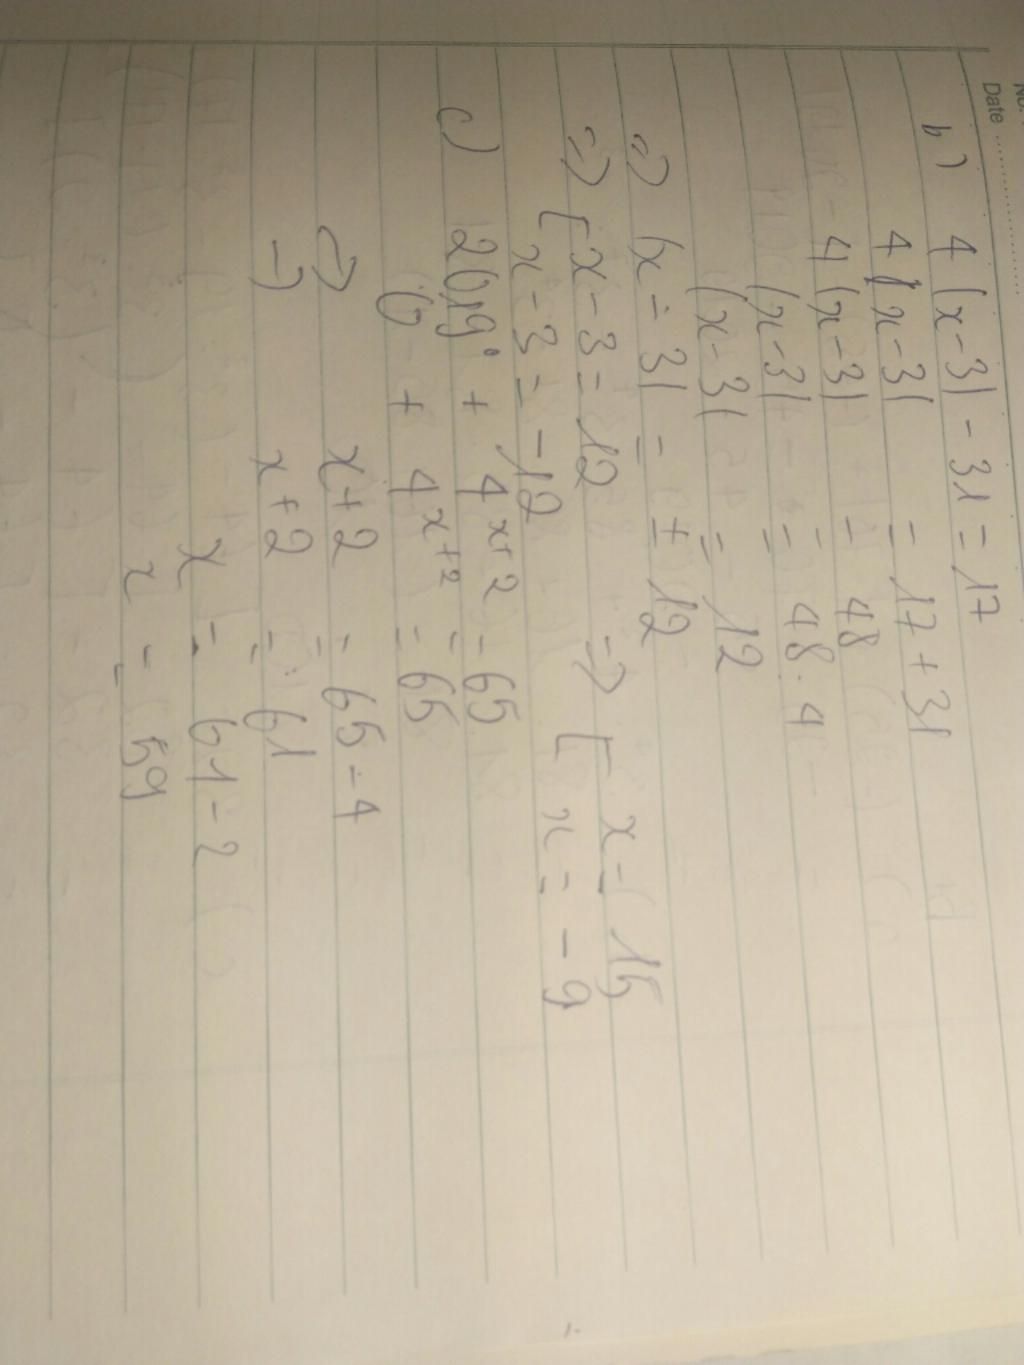 No.
Date
b) 4|x-3| - 31 = 17
4|x-3| = 17 + 31
4|x-3| = 48
|x-3| = 48 . 4
|x-3| = 12
=> |x-3| = ± 12
=> [ x-3 = 12 => [ x = 15
x-3 = -12 x = -9
c) 2019° + 4^x+2 = 65
0 + 4^x+2 = 65
=> x+2 = 65-4
=> x+2 = 61
x = 61-2
x = 59